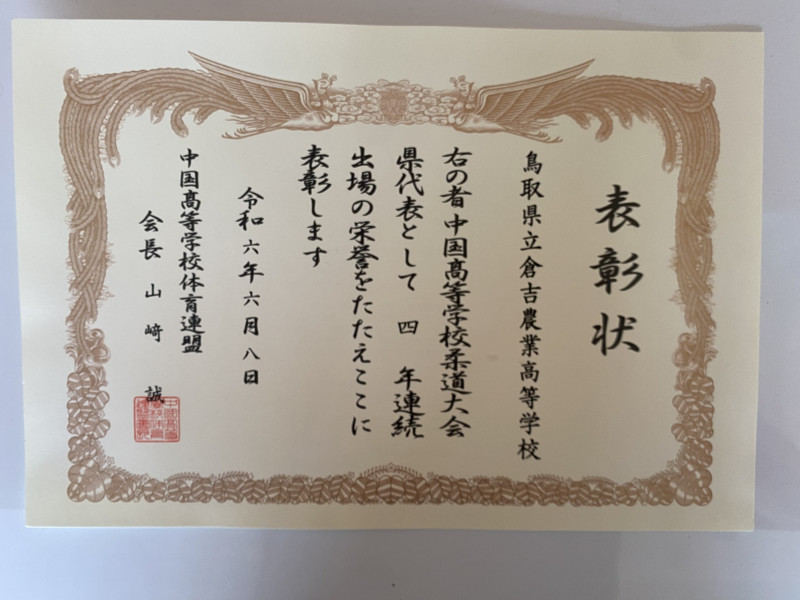 表彰状
鳥取県立倉吉農業高等学校
右の者 中国高等学校柔道大会
県代表として 四 年連続
出場の栄誉をたたえここに
表彰します
令和六年六月八日
中国高等学校体育連盟
会長 山﨑 誠